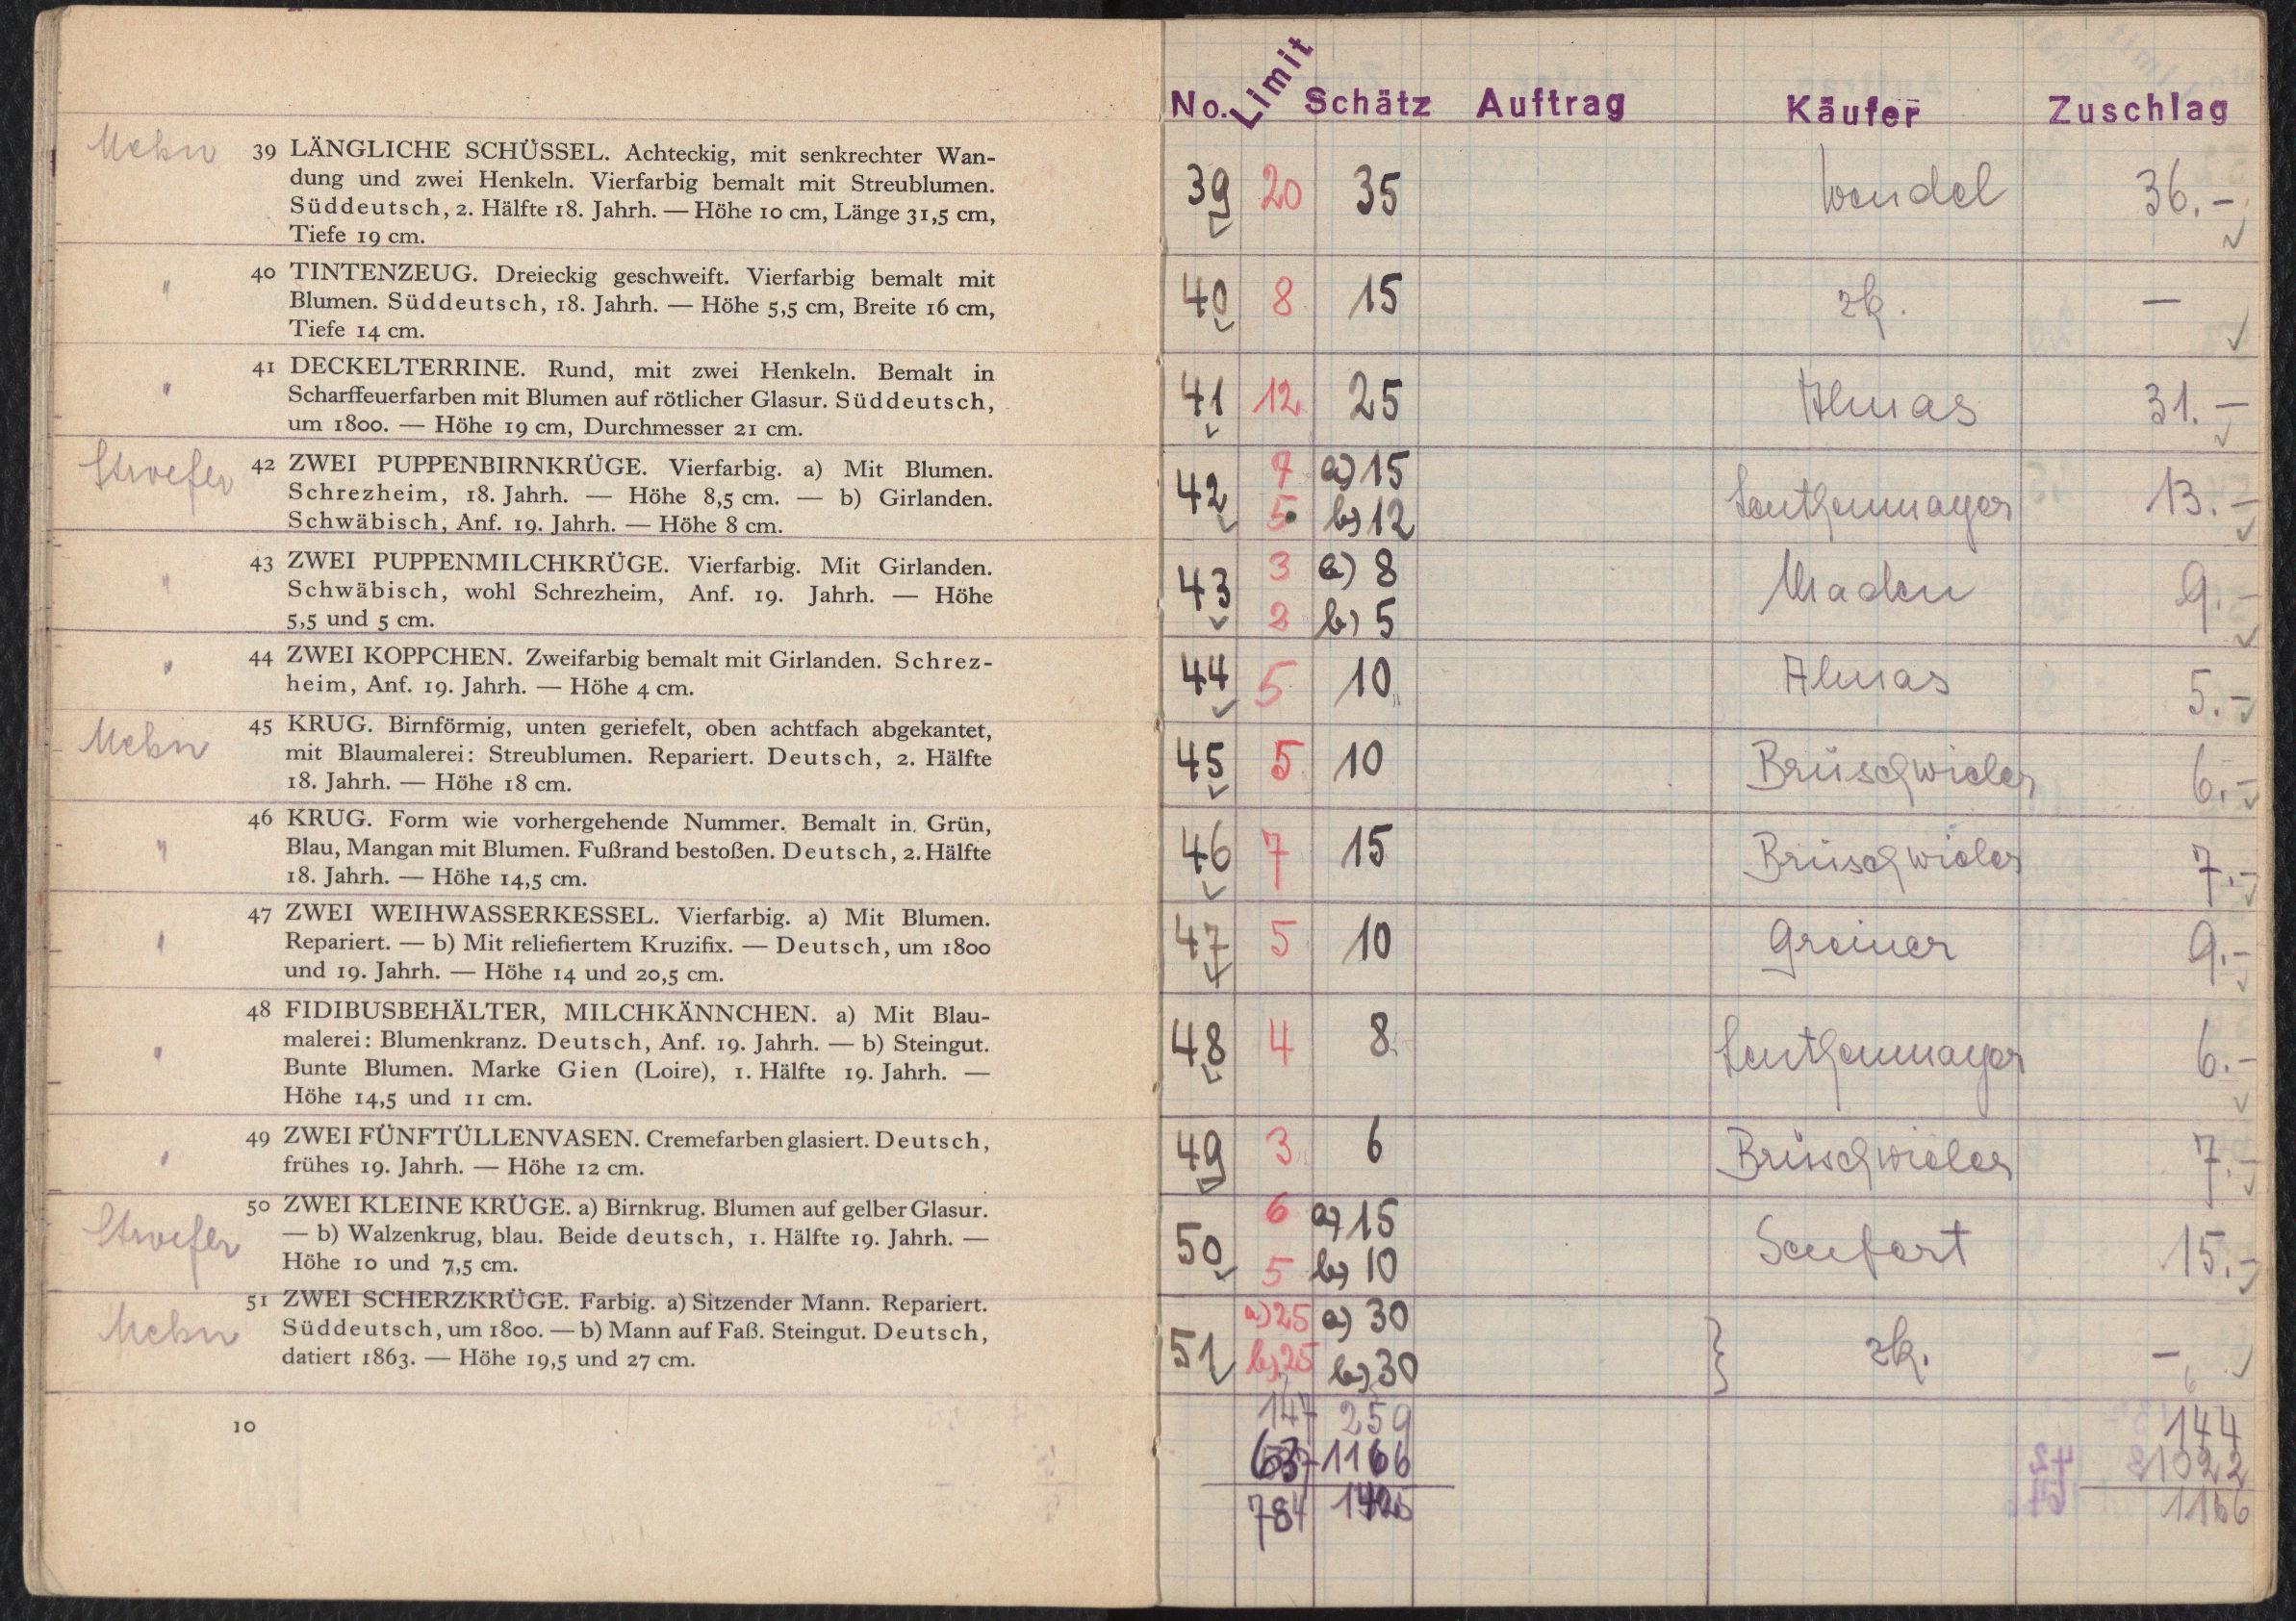 39 LÄNGLICHE SCHÜSSEL. Achteckig, mit senkrechter Wan-
dung und zwei Henkeln. Vierfarbig bemalt mit Streublumen.
Süddeutsch, 2. Hälfte 18. Jahrh. — Höhe 10 cm, Länge 31,5 cm,
Tiefe 19 cm.
" 40 TINTENZEUG. Dreieckig geschweift. Vierfarbig bemalt mit
Blumen. Süddeutsch, 18. Jahrh. — Höhe 5,5 cm, Breite 16 cm,
Tiefe 14 cm.
" 41 DECKELTERRINE. Rund, mit zwei Henkeln. Bemalt in
Scharffeuerfarben mit Blumen auf rötlicher Glasur. Süddeutsch,
um 1800. — Höhe 19 cm, Durchmesser 21 cm.
42 ZWEI PUPPENBIRNKRÜGE. Vierfarbig. a) Mit Blumen.
Schrezheim, 18. Jahrh. — Höhe 8,5 cm. — b) Girlanden.
Schwäbisch, Anf. 19. Jahrh. — Höhe 8 cm.
" 43 ZWEI PUPPENMILCHKRÜGE. Vierfarbig. Mit Girlanden.
Schwäbisch, wohl Schrezheim, Anf. 19. Jahrh. — Höhe
5,5 und 5 cm.
" 44 ZWEI KOPPCHEN. Zweifarbig bemalt mit Girlanden. Schrez-
heim, Anf. 19. Jahrh. — Höhe 4 cm.
45 KRUG. Birnförmig, unten geriefelt, oben achtfach abgekantet,
mit Blaumalerei: Streublumen. Repariert. Deutsch, 2. Hälfte
18. Jahrh. — Höhe 18 cm.
" 46 KRUG. Form wie vorhergehende Nummer. Bemalt in Grün,
Blau, Mangan mit Blumen. Fußrand bestoßen. Deutsch, 2. Hälfte
18. Jahrh. — Höhe 14,5 cm.
" 47 ZWEI WEIHWASSERKESSEL. Vierfarbig. a) Mit Blumen.
Repariert. — b) Mit reliefiertem Kruzifix. — Deutsch, um 1800
und 19. Jahrh. — Höhe 14 und 20,5 cm.
" 48 FIDIBUSBEHÄLTER, MILCHKÄNNCHEN. a) Mit Blau-
malerei: Blumenkranz. Deutsch, Anf. 19. Jahrh. — b) Steingut.
Bunte Blumen. Marke Gien (Loire), 1. Hälfte 19. Jahrh. —
Höhe 14,5 und 11 cm.
" 49 ZWEI FÜNFTÜLLENVASEN. Cremefarben glasiert. Deutsch,
frühes 19. Jahrh. — Höhe 12 cm.
50 ZWEI KLEINE KRÜGE. a) Birnkrug. Blumen auf gelber Glasur.
— b) Walzenkrug, blau. Beide deutsch, 1. Hälfte 19. Jahrh. —
Höhe 10 und 7,5 cm.
51 ZWEI SCHERZKRÜGE. Farbig. a) Sitzender Mann. Repariert.
Süddeutsch, um 1800. — b) Mann auf Faß. Steingut. Deutsch,
datiert 1863. — Höhe 19,5 und 27 cm.
10
No. Limit Schätz Auftrag Käufer Zuschlag
39 20 35 Wendel 36.–
40 8 15 zk. —
41 12 25 Almas 31.–
42 7 a) 15 13.–
5 b) 12
43 3 a) 8 9.–
2 b) 5
44 5 10 Almas 5.–
45 5 10 Brüschwieler 6.–
46 7 15 Brüschwieler 7.–
47 5 10 Greiner 9.–
48 4 8 6.–
49 3 6 Brüschwieler 7.–
50 6 a) 15 Seufert 15.–
5 b) 10
51 a) 25 a) 30 zk. –
b) 25 b) 30
147 259 144
637 1166 1022
784 1425 1166